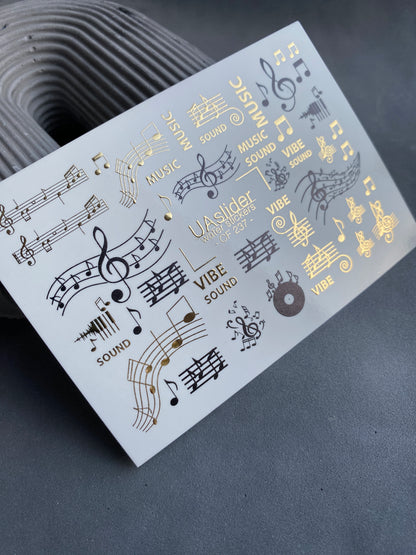 MUSIC
MUSIC
SOUND
MUSIC
MUSIC
SOUND
VIBE
SOUND
UAslider
WATER STICKERS
CF 237
VIBE
VIBE
SOUND
SOUND
VIBE